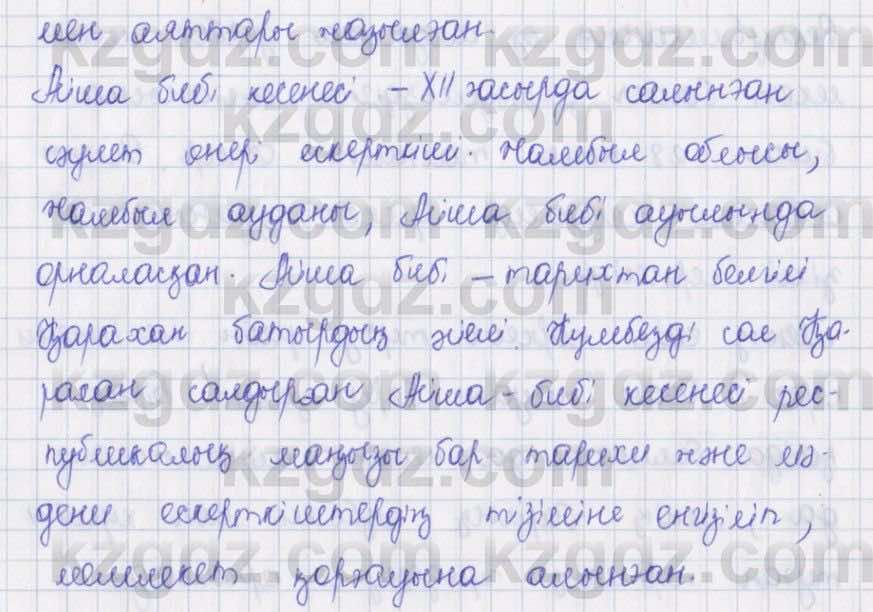 мен аяттары жазылған.
Айша бибі кесенесі – XII ғасырда салынған
сәулет өнері ескерткіші. Жамбыл облысы,
Жамбыл ауданы, Айша бибі ауылында
орналасқан. Айша бибі – тарихтан белгілі
Қарахан батырдың әйелі. Күмбезді сәс Қа-
рахан салдырған Айша-бибі кесенесі рес-
публикалық маңызы бар тарихи және мә-
дени ескерткіштердің тізіміне енгізіліп,
мемлекет қорғауына алынған.
kzgdz.com
kzgdz.com
kzgdz.com
kzgdz.com
kzgdz.com
kzgdz.com
kzgdz.com